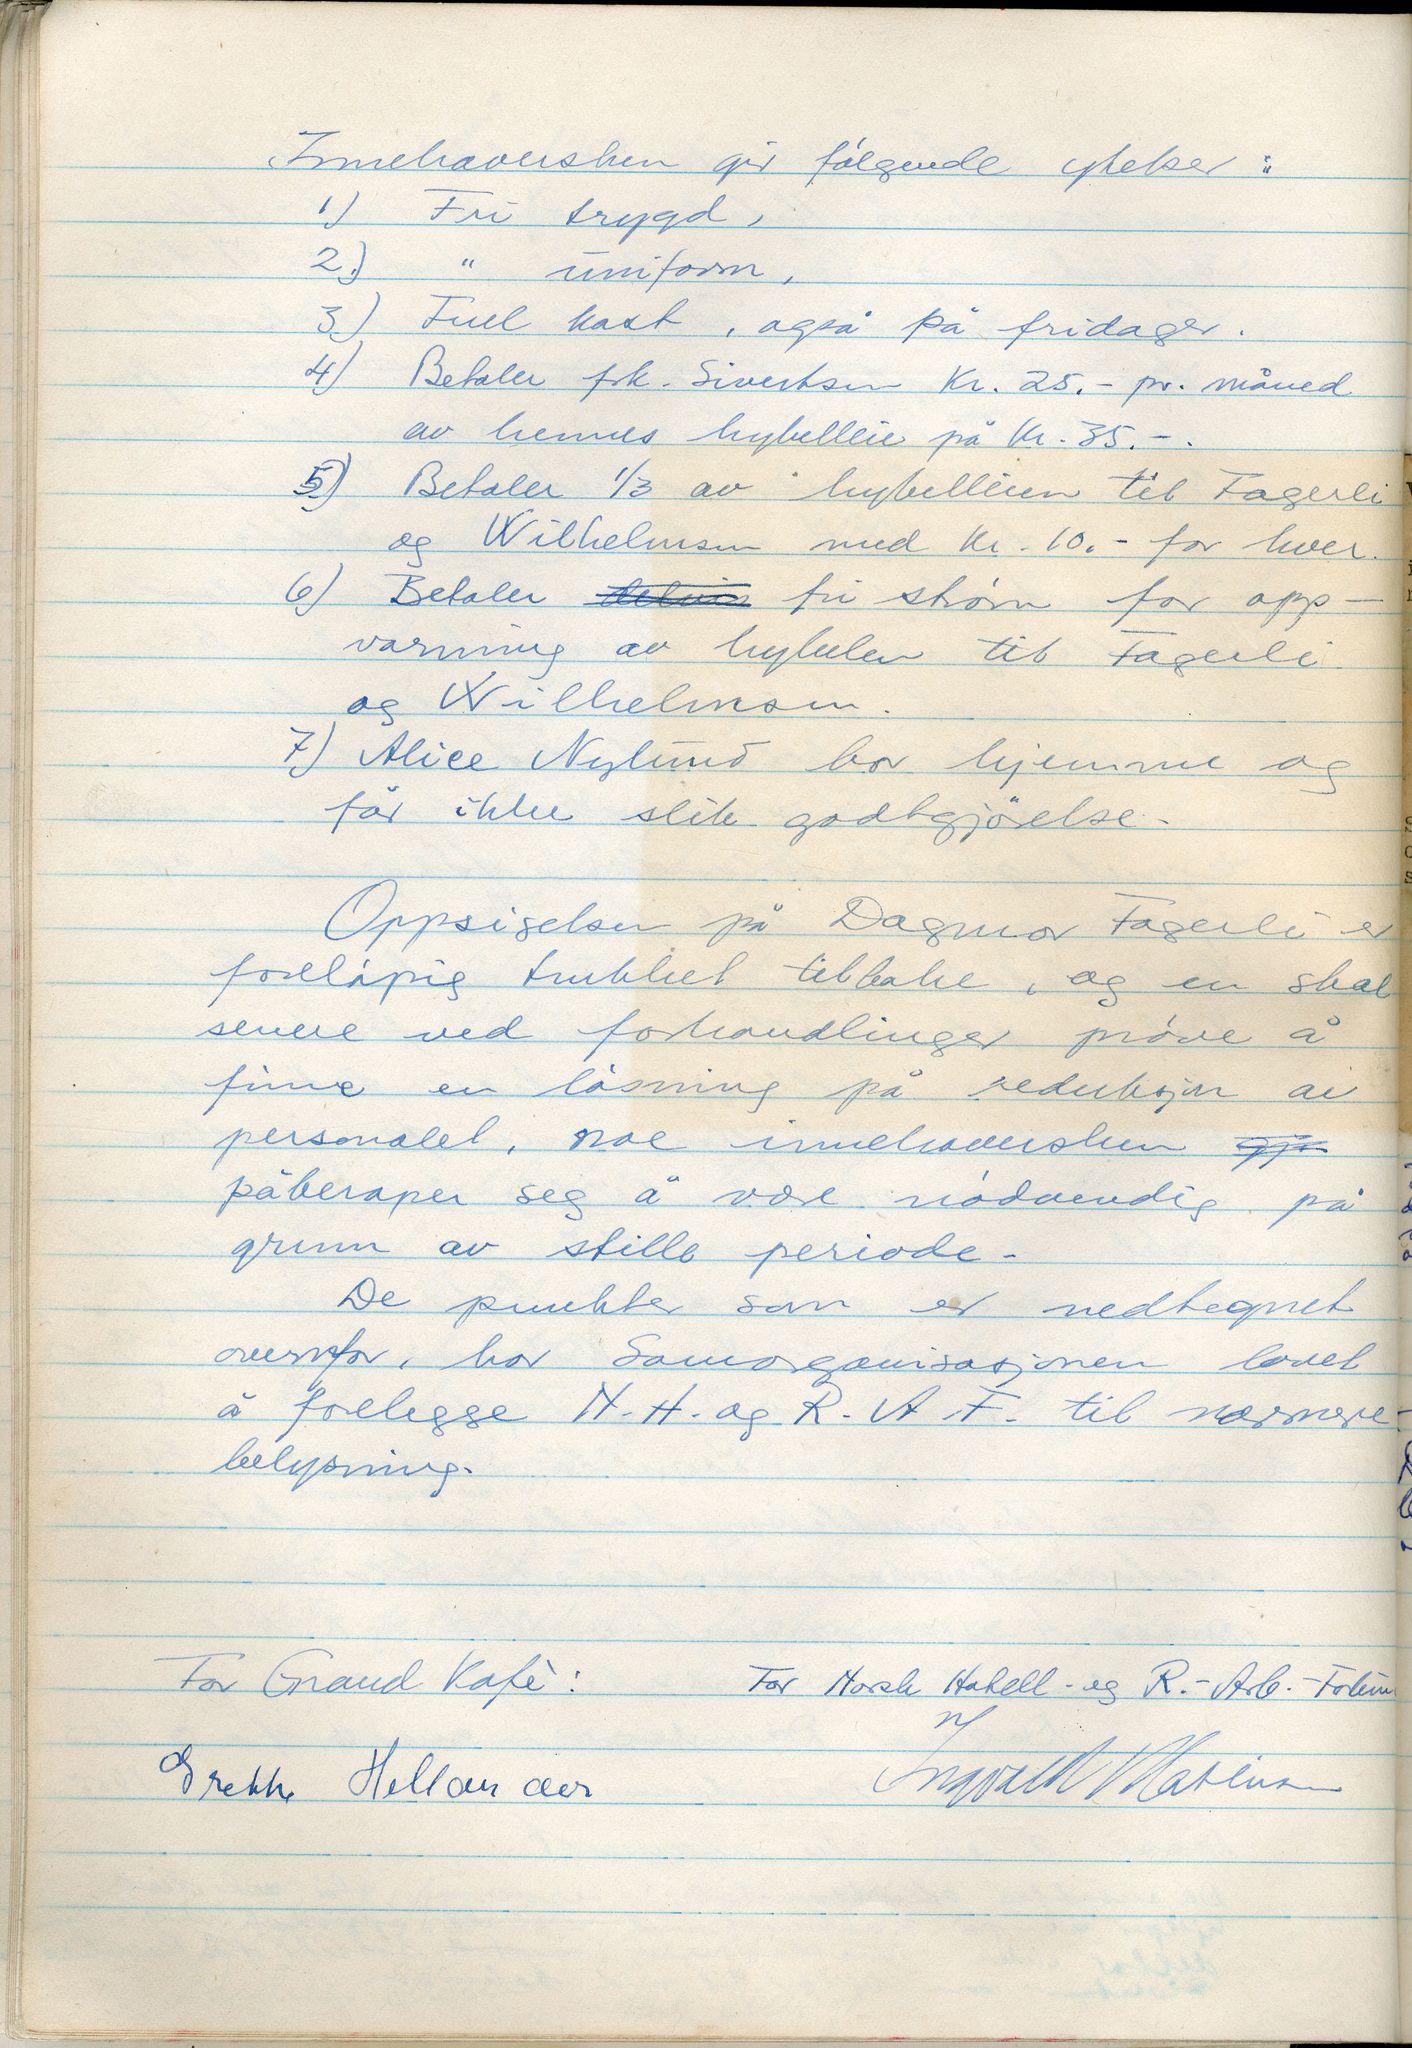 Innehaversken gir følgende ytelser:
1) Fri trygd,
2) " uniform,
3) Full kost, også på fridager.
4) Betaler frk. Sivertsen Kr. 25.- pr. måned
av hennes hybelleie på Kr. 35.-.
5) Betaler 1/3 av hybelleien til Fagerli
og Wilhelmsen med Kr. 10.- for hver.
6) Betaler delvis fri strøm for opp-
varming av hybelen til Fagerli
og Wilhelmsen.
7) Alice Nylund bor hjemme og
får ikke slik godtgjörelse.
Oppsigelsen på Dagmar Fagerli er
foreløpig trukket tilbake, og en skal
senere ved forhandlinger prøve å
finne en løsning på reduksjon av
personalet, noe innehaversken
påberoper seg å være nødvendig på
grunn av stille periode.
De punkter som er nedtegnet
ovenfor, har Samorganisasjonen lovet
å forelegge N.H. og R.A.F. til nærmere
belysning.
For Grand Kafè: For Norsk Hotell- og R.-Arb.-Forbun
Hellander Ingvald